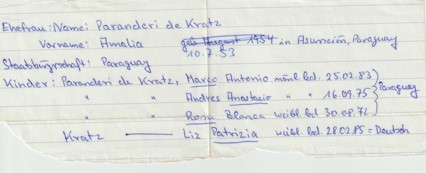 Ehefrau: Name: Paranderi de Kratz
Vorname: Amalia geb. August 1954 in Asunción, Paraguay
10.7.53
Staatsbürgerschaft: Paraguay
Kinder: Paranderi de Kratz, Marco Antonio männl. led. 25.02.83
" " Andres Anastacio " " 16.09.75 } Paraguay
" " Rosa Blanca weibl. led 30.08.72
Kratz — Liz Patrizia weibl. led. 28.02.85 = Deutsch